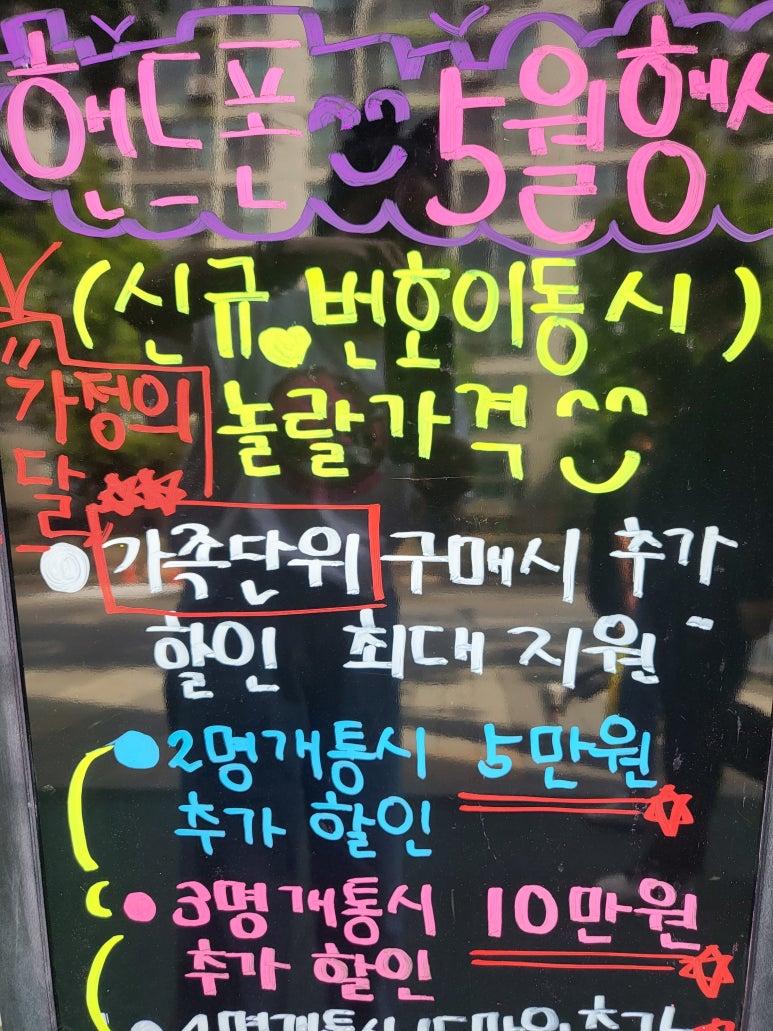 핸드폰 5월행사
(신규, 번호이동시)
가정의
달
놀랄가격
가족단위 구매시 추가
할인 최대 지원
2명개통시 5만원
추가 할인
3명개통시 10만원
추가 할인
4명개통시